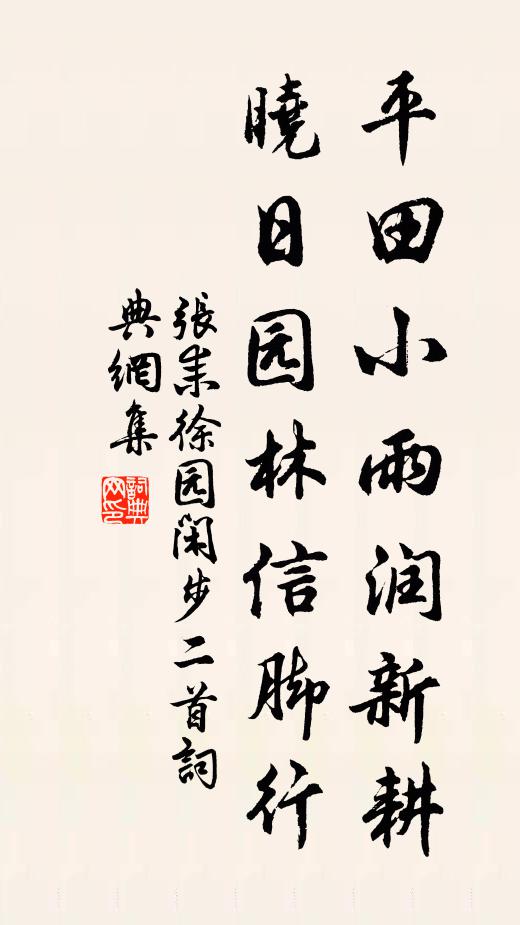 平田小雨润新耕
曉日园林信脚行
張耒徐园闲步二首詞
典網集
詞典
网印